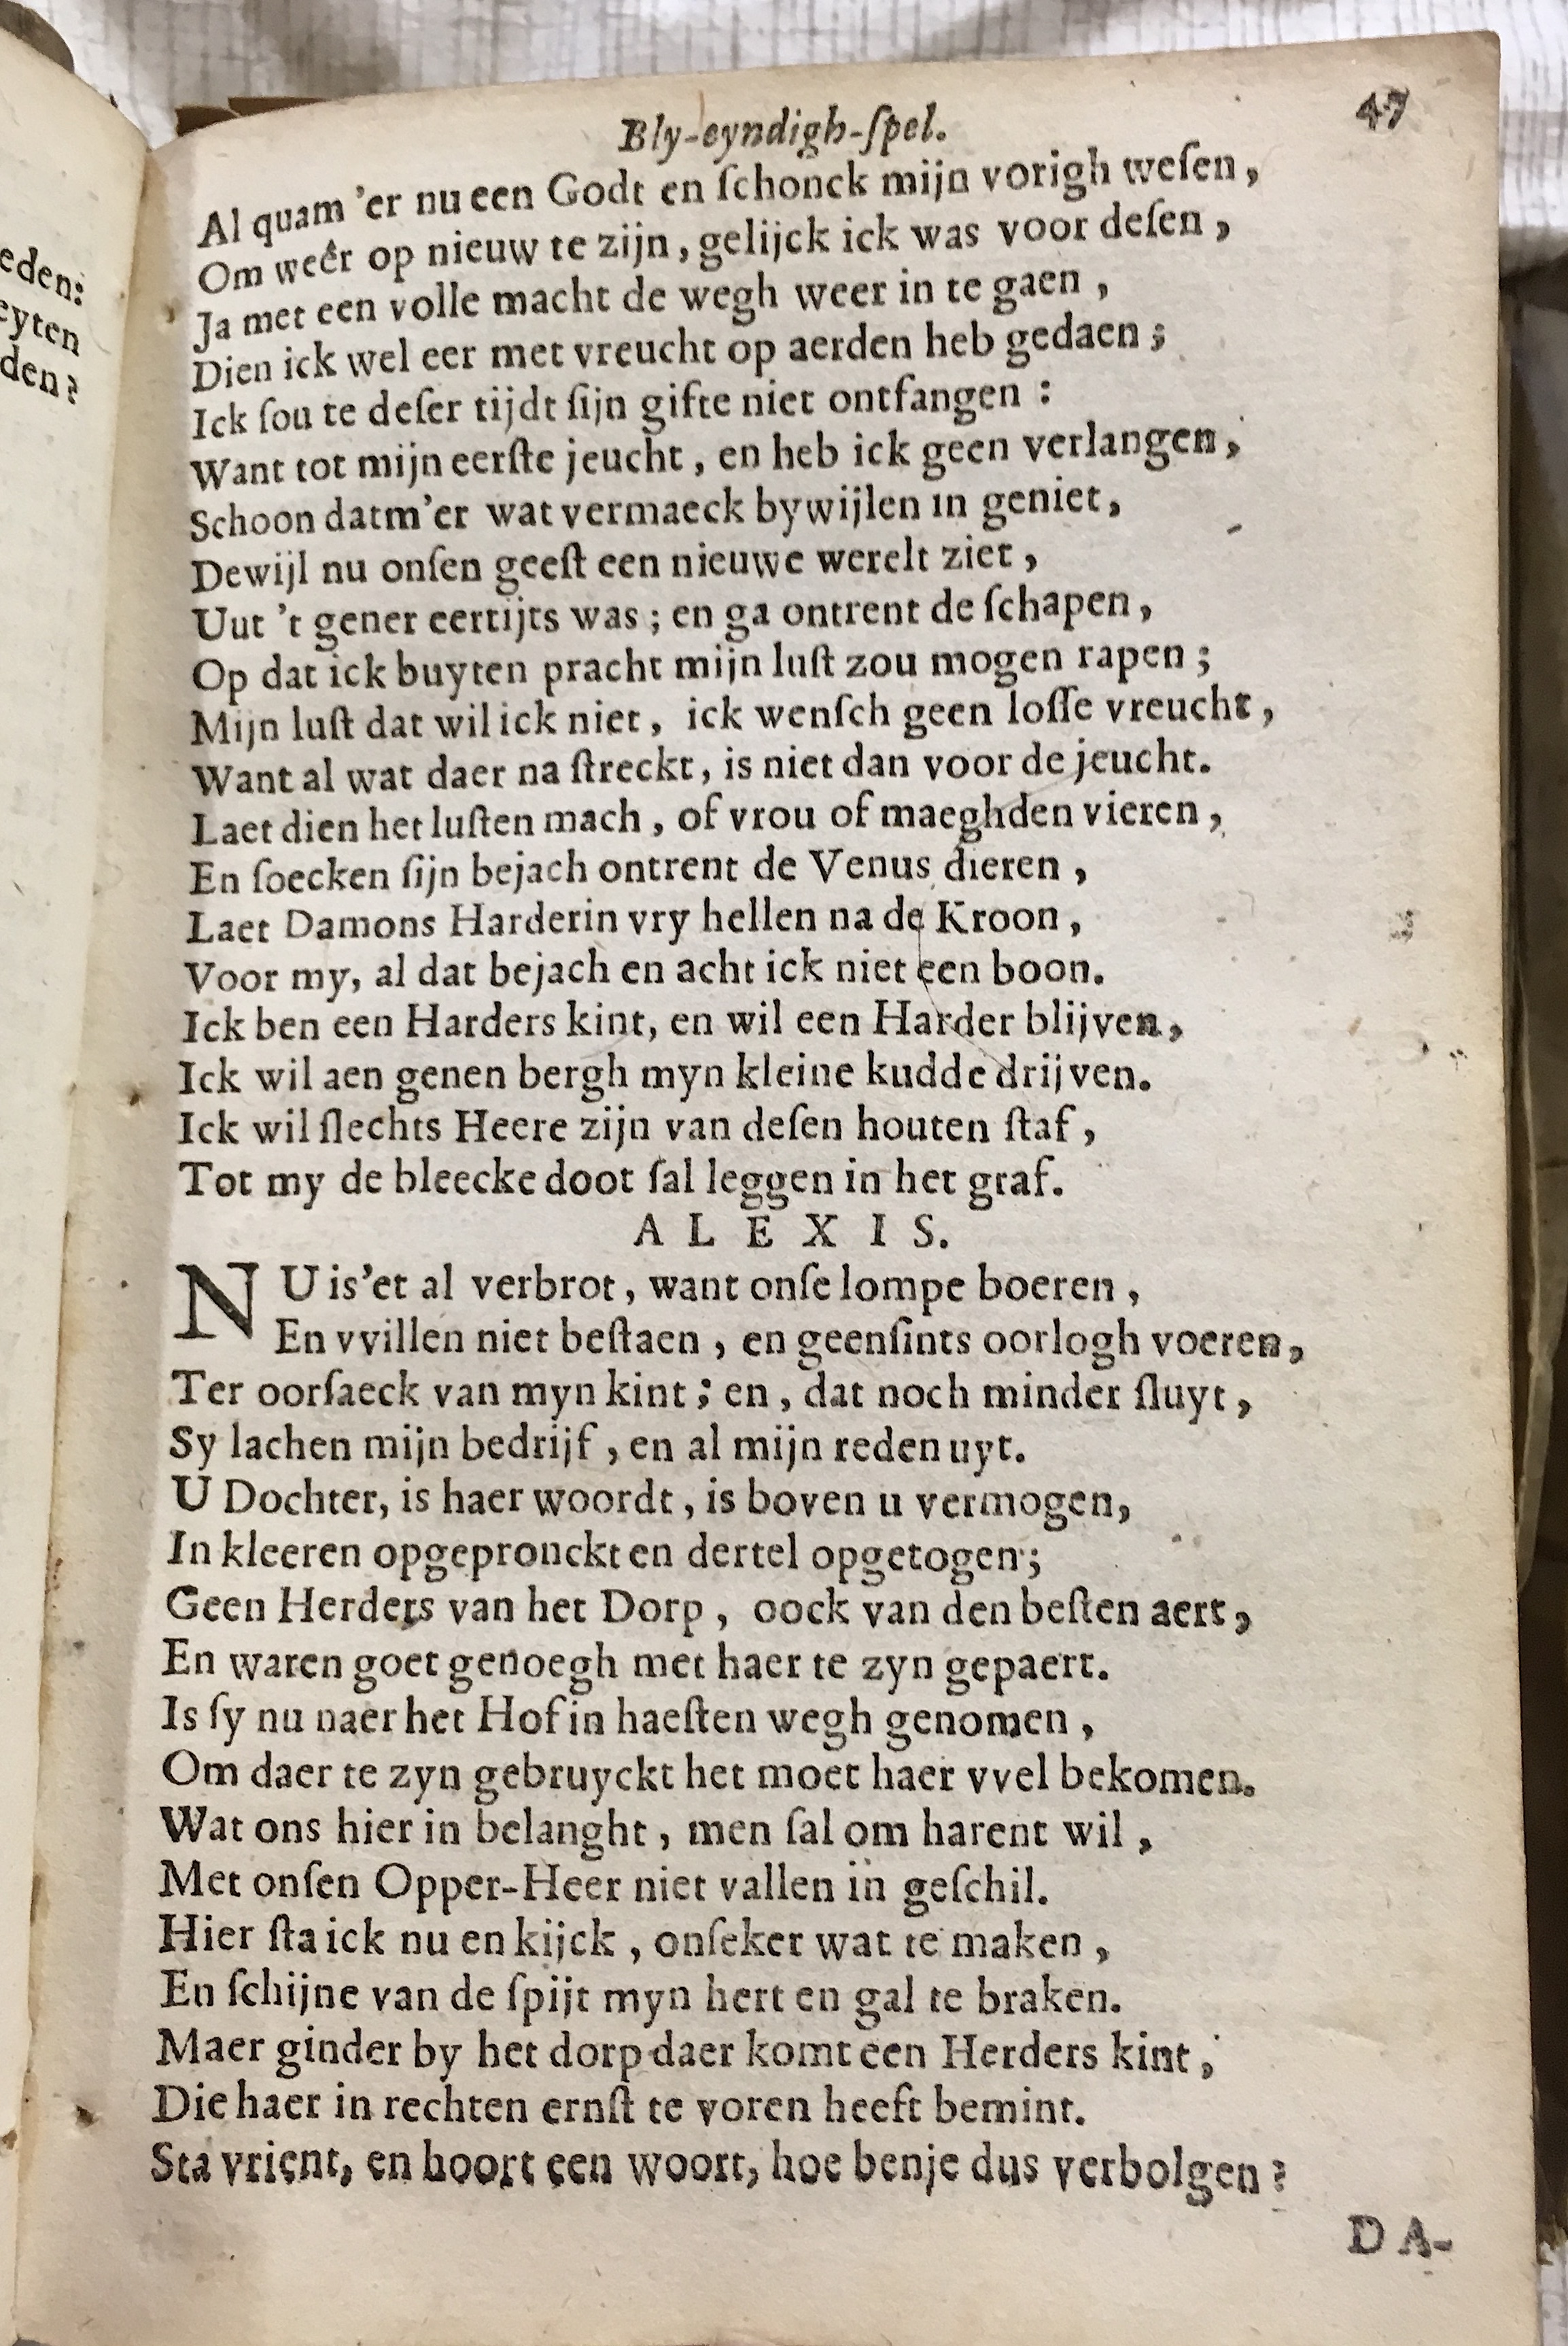 eden:
eyten
den?
Bly-eyndigh-ſpel. 47
Al quam 'er nu een Godt en ſchonck mijn vorigh weſen,
Om weêr op nieuw te zijn, gelijck ick was voor deſen,
Ja met een volle macht de wegh weer in te gaen,
Dien ick wel eer met vreucht op aerden heb gedaen;
Ick ſou te deſer tijdt ſijn gifte niet ontfangen:
Want tot mijn eerſte jeucht, en heb ick geen verlangen,
Schoon datm'er wat vermaeck bywijlen in geniet,
Dewijl nu onſen geeſt een nieuwe werelt ziet,
Uut 't gener eertijts was; en ga ontrent de ſchapen,
Op dat ick buyten pracht mijn luſt zou mogen rapen;
Mijn luſt dat wil ick niet, ick wenſch geen loſſe vreucht,
Want al wat daer na ſtreckt, is niet dan voor de jeucht.
Laet dien het luſten mach, of vrou of maeghden vieren,
En ſoecken ſijn bejach ontrent de Venus dieren,
Laet Damons Harderin vry hellen na de Kroon,
Voor my, al dat bejach en acht ick niet een boon.
Ick ben een Harders kint, en wil een Harder blijven,
Ick wil aen genen bergh myn kleine kudde drijven.
Ick wil ſlechts Heere zijn van deſen houten ſtaf,
Tot my de bleecke doot ſal leggen in het graf.
ALEXIS.
NU is'et al verbrot, want onſe lompe boeren,
En vvillen niet beſtaen, en geenſints oorlogh voeren,
Ter oorſaeck van myn kint; en, dat noch minder ſluyt,
Sy lachen mijn bedrijf, en al mijn reden uyt.
U Dochter, is haer woordt, is boven u vermogen,
In kleeren opgepronckt en dertel opgetogen;
Geen Herders van het Dorp, oock van den beſten aert,
En waren goet genoegh met haer te zyn gepaert.
Is ſy nu naer het Hof in haeſten wegh genomen,
Om daer te zyn gebruyckt het moet haer vvel bekomen.
Wat ons hier in belanght, men ſal om harent wil,
Met onſen Opper-Heer niet vallen in geſchil.
Hier ſta ick nu en kijck, onſeker wat te maken,
En ſchijne van de ſpijt myn hert en gal te braken.
Maer ginder by het dorp daer komt een Herders kint,
Die haer in rechten ernſt te voren heeft bemint.
Sta vrient, en hoort een woort, hoe benje dus verbolgen?
DA-